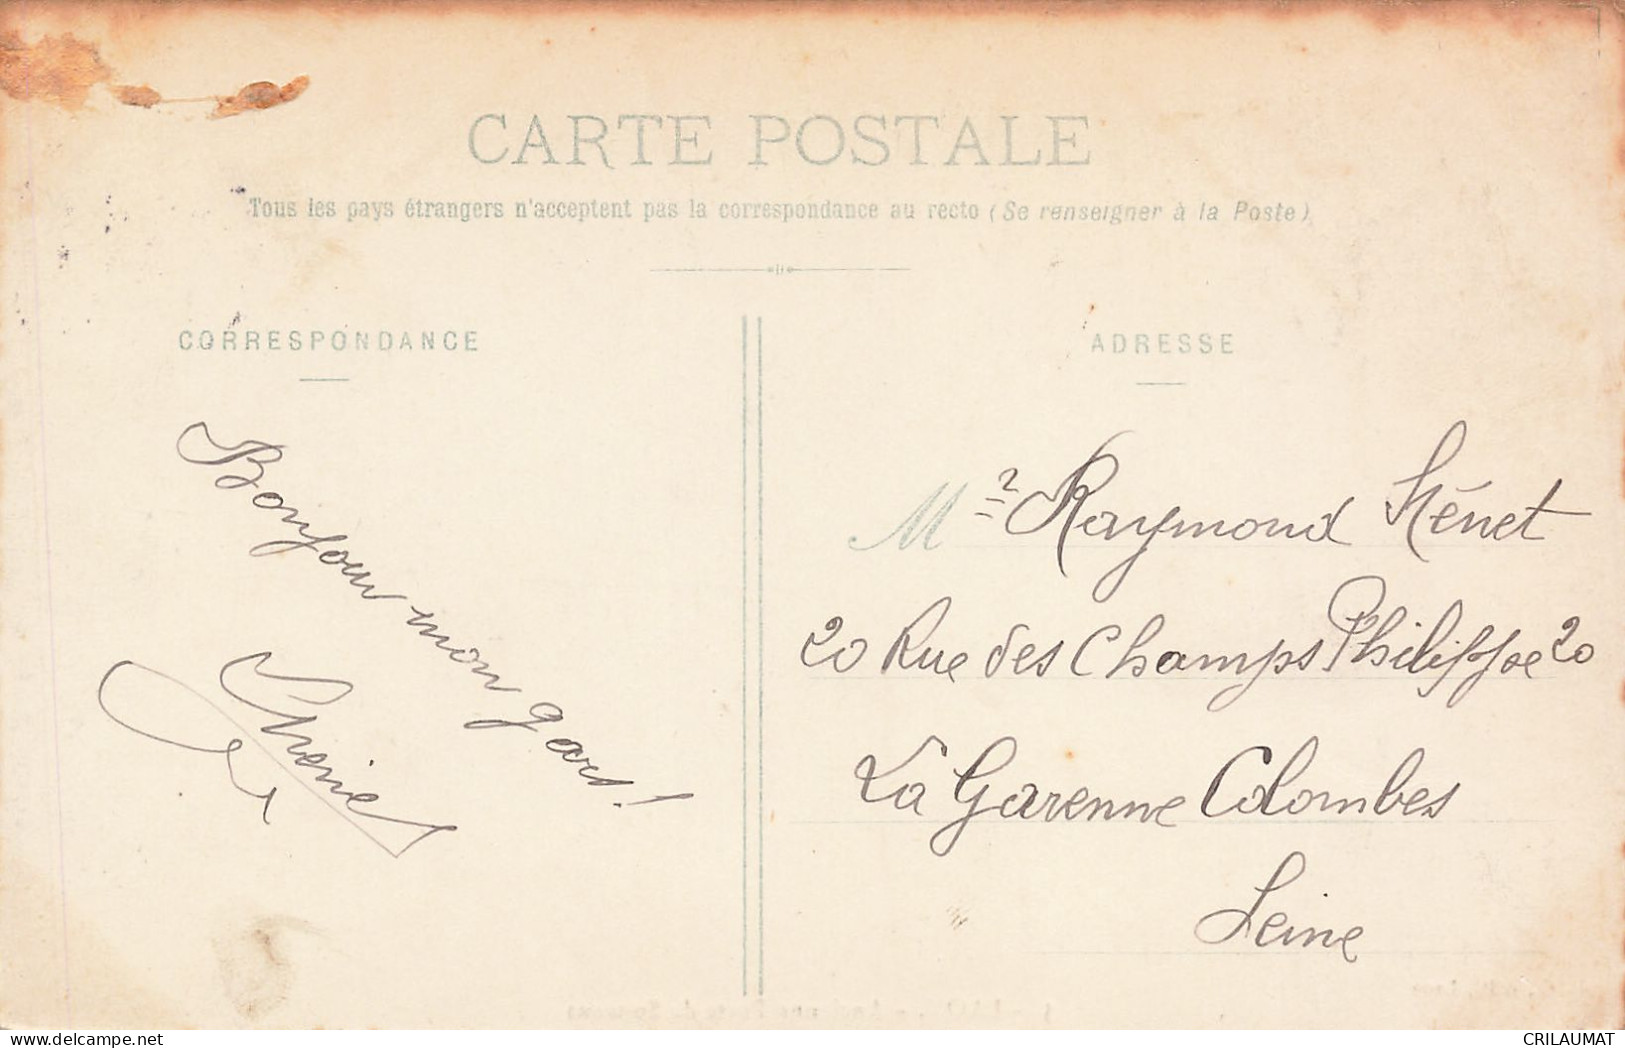 CARTE POSTALE
Tous les pays étrangers n'acceptent pas la correspondance au recto (Se renseigner à la Poste)
CORRESPONDANCE
Bonjour mon gars!
ADRESSE
Mr Raymond Hénet
20 Rue des Champs Philippe 20
La Garenne Colombes
Seine
CRILAUMAT